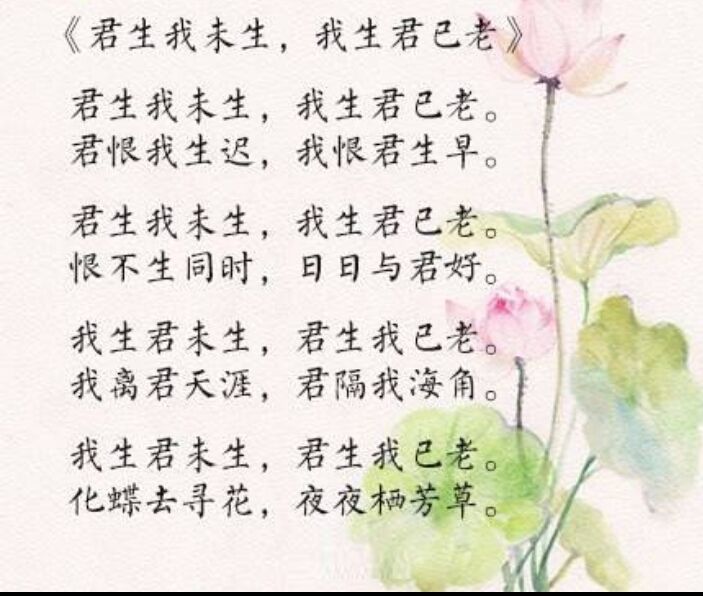 《君生我未生，我生君已老》
君生我未生，我生君已老。
君恨我生迟，我恨君生早。
君生我未生，我生君已老。
恨不生同时，日日与君好。
我生君未生，君生我已老。
我离君天涯，君隔我海角。
我生君未生，君生我已老。
化蝶去寻花，夜夜栖芳草。